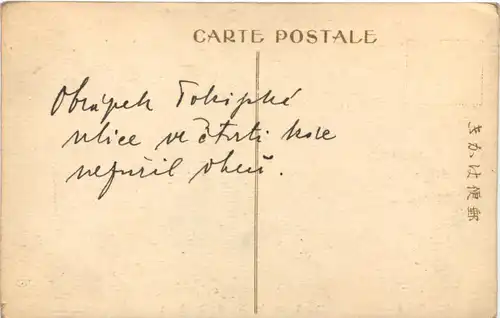 CARTE POSTALE
Obrázek Tokijské
ulice ve čtvrti kde
neřušil oheň.
きかは便郵